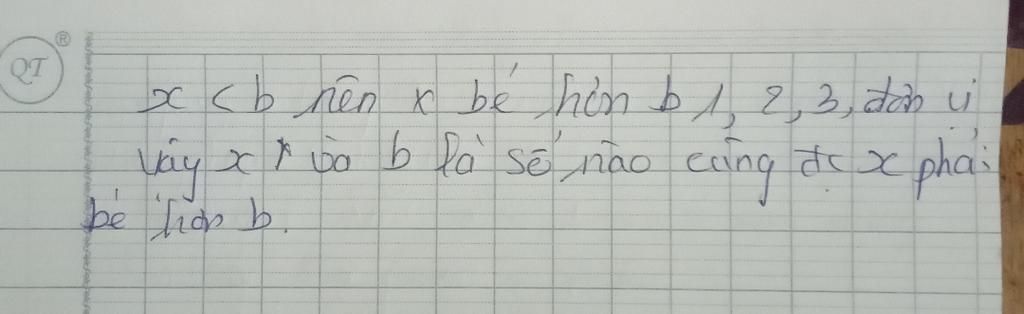 QT ®
x < b nên x bé hơn b 1, 2, 3, đơn vị
vậy x và b là số nào cũng đc x phải
bé hơn b.